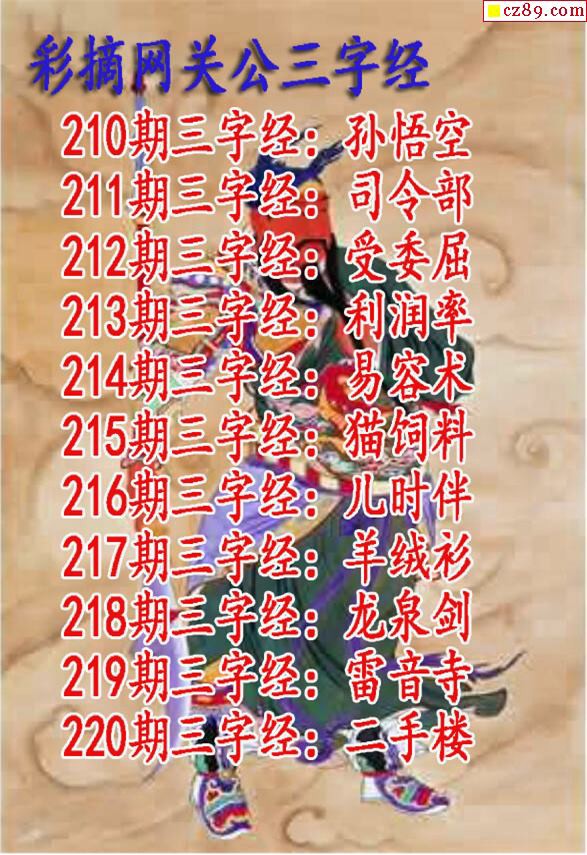 cz89.com
彩摘网关公三字经
210期三字经：孙悟空
211期三字经：司令部
212期三字经：受委屈
213期三字经：利润率
214期三字经：易容术
215期三字经：猫饲料
216期三字经：儿时伴
217期三字经：羊绒衫
218期三字经：龙泉剑
219期三字经：雷音寺
220期三字经：二手楼